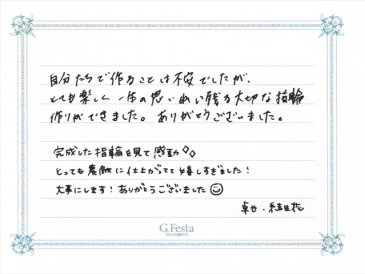 自分たちで作ることは不安でしたが、
とても楽しく一生の思い出に残る大切な指輪
作りができました。ありがとうございました。
完成した指輪を見て感動
とっても素敵に仕上がってて嬉しすぎました！
大事にします！ありがとうございました
G.Festa